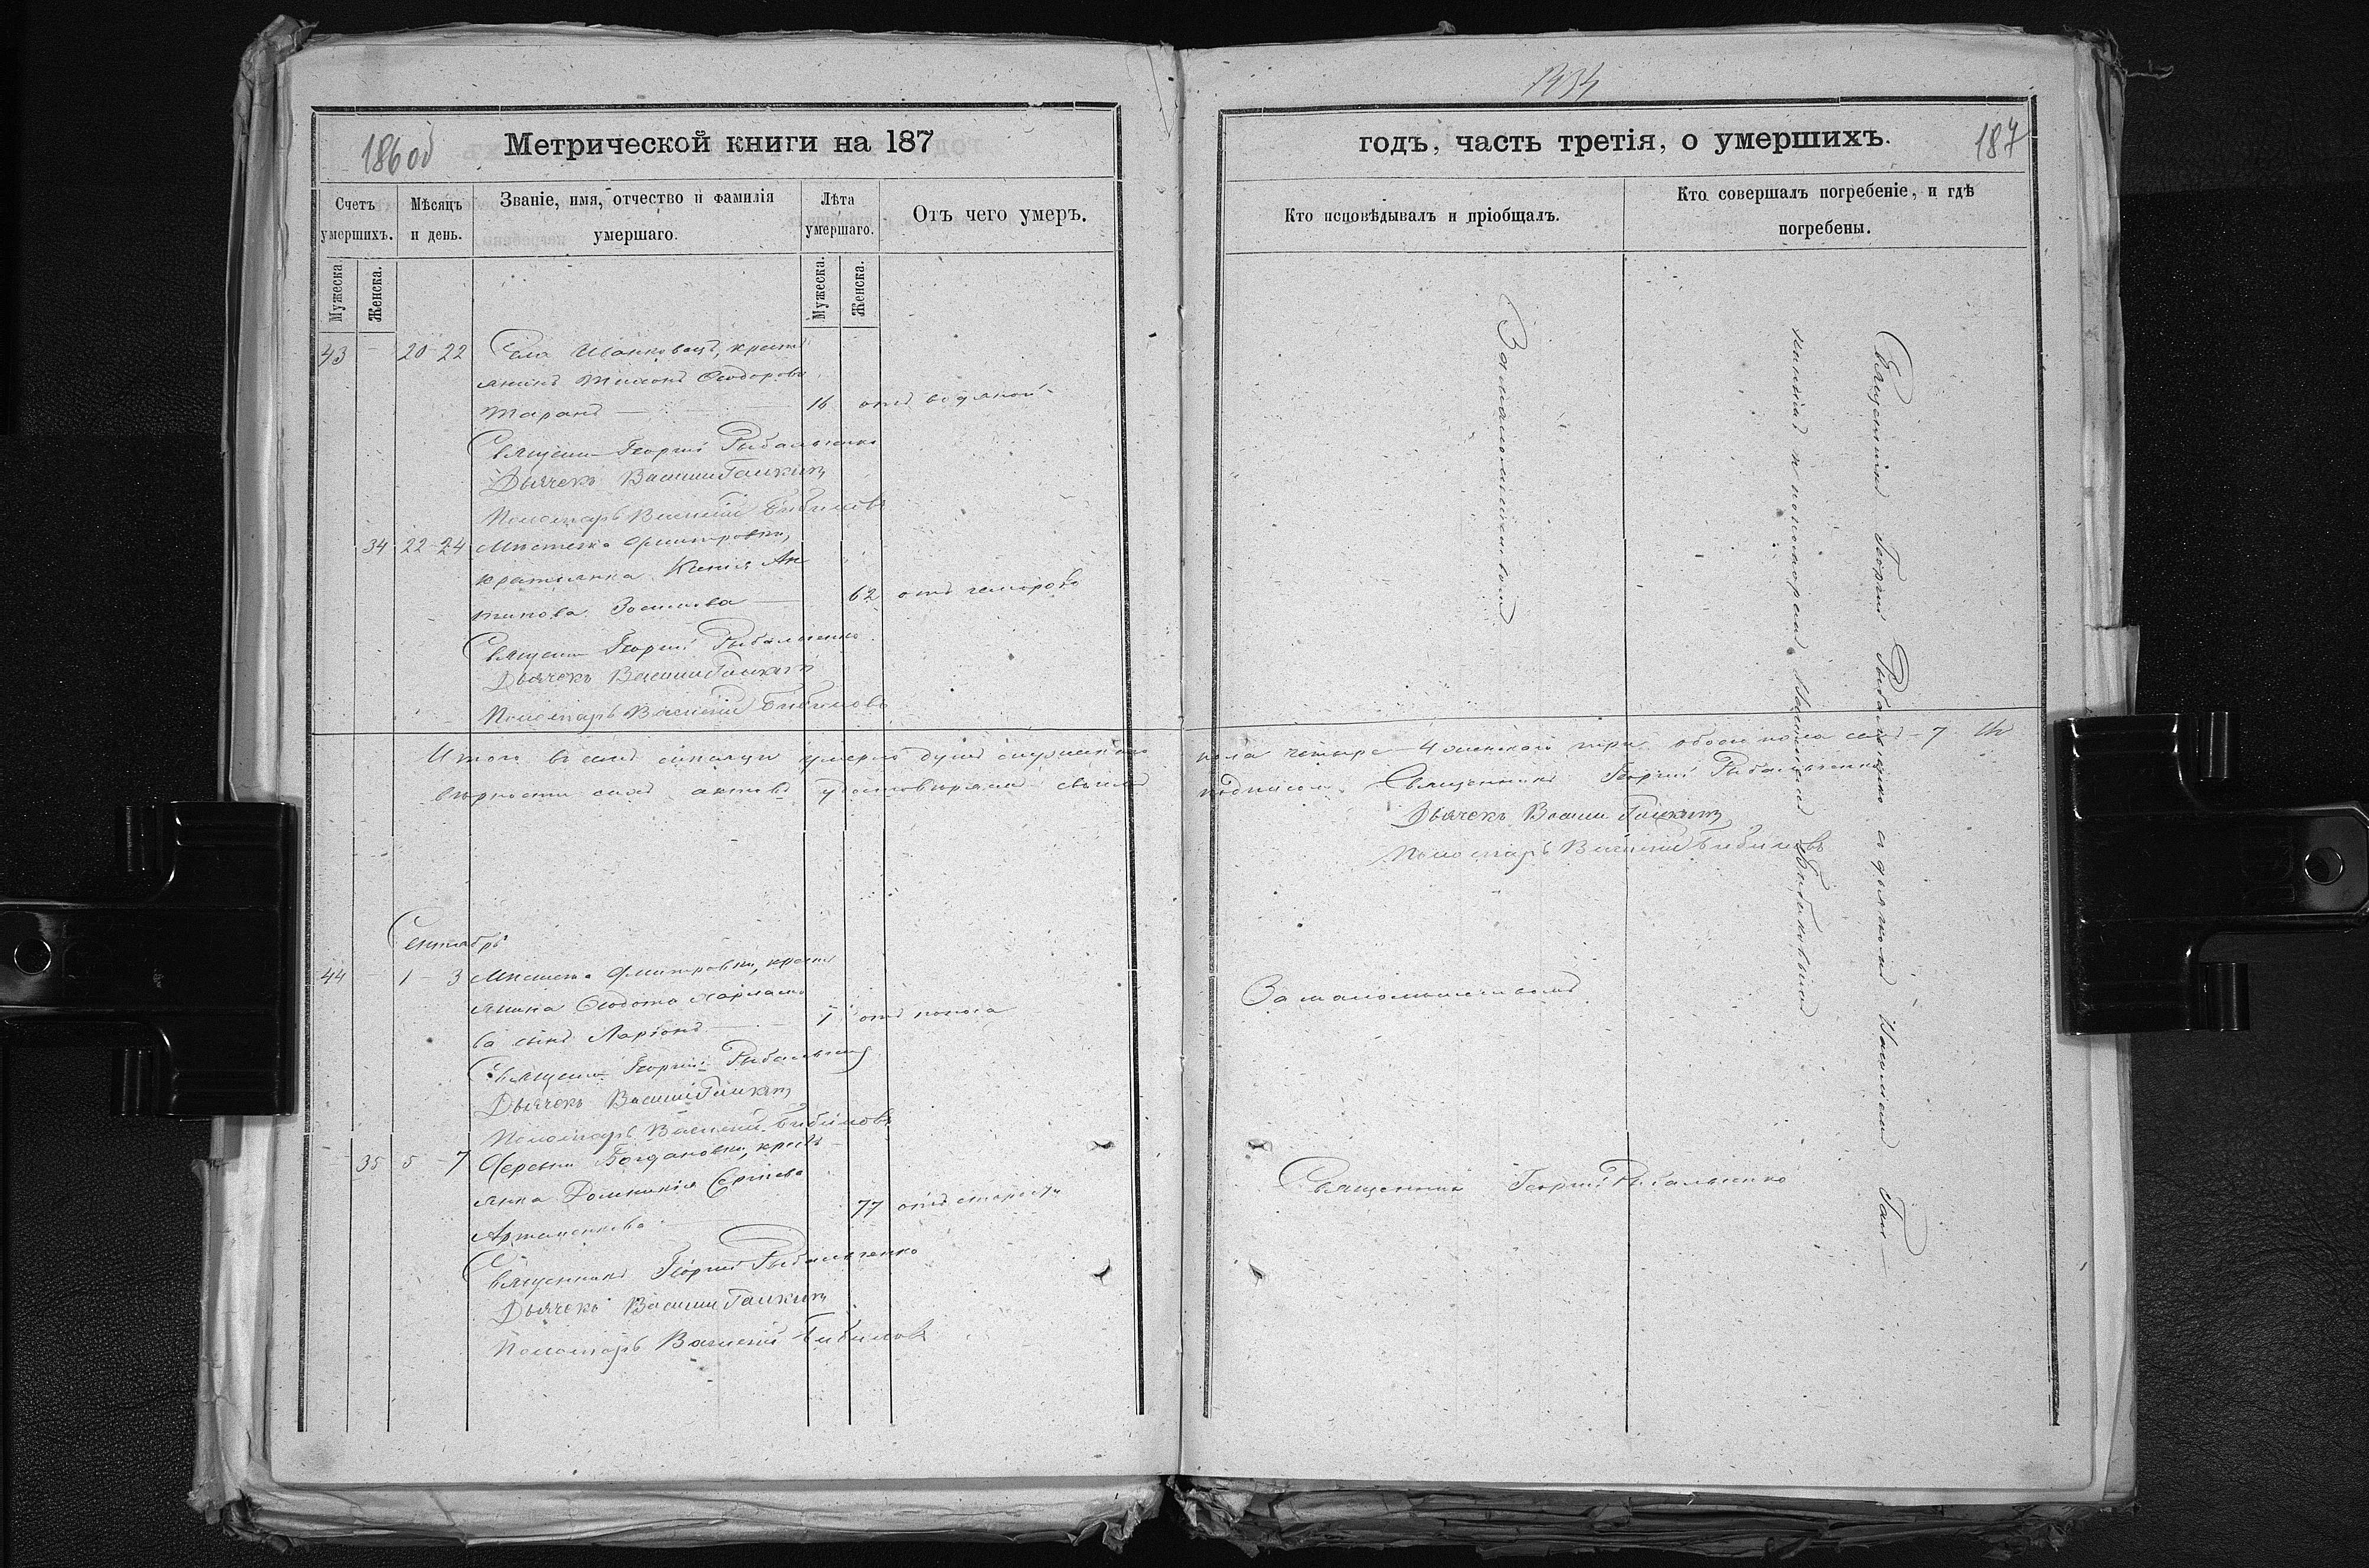 1434
186 об
Метрической книги на 187
годъ, часть третія, о умершихъ.
187
Счетъ умершихъ.
Мѣсяцъ и день.
Званіе, имя, отчество и фамилія умершаго.
Лѣта умершаго.
Отъ чего умеръ.
Кто исповѣдывалъ и пріобщалъ.
Кто совершалъ погребеніе, и гдѣ погребены.
Мужеска.
Женска.
Мужеска.
Женска.
43 - 20 22 Села Иванковецъ, кресть
янинъ Тихонъ Ѳеодоровъ
Таранъ — 16 отъ водяной
Священ Георгій Рыбальченко
Дьячекъ Василій
Пономарь Василій Бибиковъ
34 22 24 Мѣстечка Дмитровки,
крестьянка Ксенія Ан
типова — 62 отъ гемороя
Священ Георгій Рыбальченко
Дьячекъ Василій
Пономарь Василій Бибиковъ
Итого въ семъ мѣсяцѣ умерло душъ мужескаго пола четыре — 4 женскаго три, обоего пола семь — 7 Въ
вѣрности сихъ актовъ удостовѣряемъ своимъ подписомъ. Священникъ Георгій Рыбальченко
Дьячекъ Василій
Пономарь Василій Бибиковъ
Сентябрь
44 - 1 - 3 Мѣстечка Дмитровки, кресть
янина Ѳедота Харламо
ва сынъ Ларіонъ — 1 отъ поноса
Священ Георгій Рыбальченко
Дьячекъ Василій
Пономарь Василій Бибиковъ
35 5 - 7 Деревни Богдановки, кресть
янка Домникія Сергѣева
Артеменкова — 77 отъ старости
Священникъ Георгій Рыбальченко
Дьячекъ Василій
Пономарь Василій Бибиковъ
За малолѣтствомъ
За малолѣтствомъ
Священникъ Георгій Рыбальченко
Священникъ Георгій Рыбальченко съ дьячкомъ Василіемъ
и пономаремъ Василіемъ Бибиковымъ